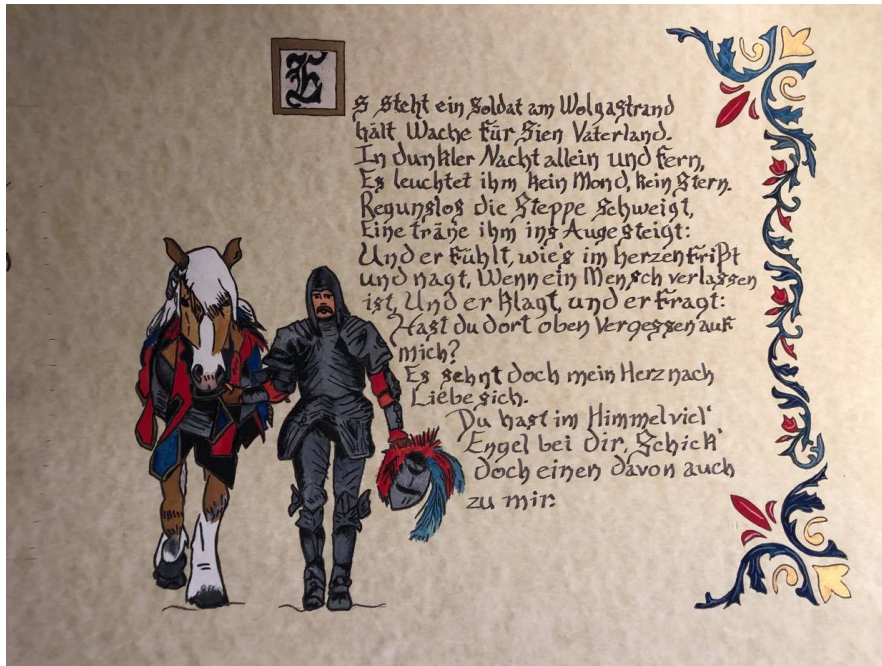 Es steht ein Soldat am Wolgastrand
hält Wache für Sien Vaterland.
In dunkler Nacht allein und fern,
Es leuchtet ihm kein Mond, kein Stern.
Regunslos die Steppe schweigt,
Eine träne ihm ins Auge steigt:
Und er fühlt, wie's im herzen frißt
und nagt, Wenn ein Mensch verlassen
ist, Und er klagt, und er fragt:
Hast du dort oben Vergessen auf
mich?
Es sehnt doch mein Herz nach
Liebe sich.
Du hast im Himmel viel'
Engel bei dir, Schick'
doch einen davon auch
zu mir.